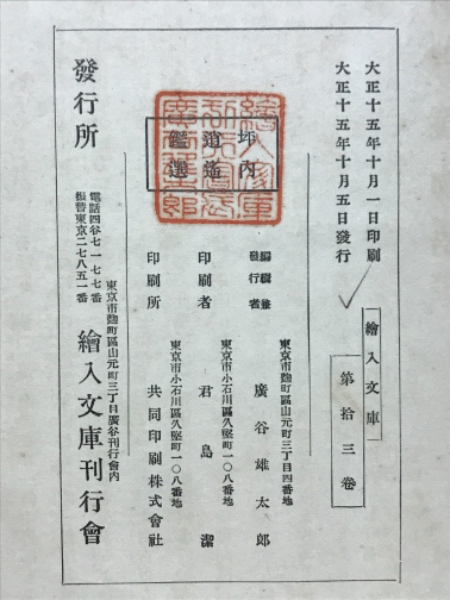 大正十五年十月一日印刷
大正十五年十月五日發行
繪入文庫
第拾三卷
坪內
逍遙
鑑選
編輯兼
發行者
東京市麴町區山元町三丁目四番地
廣谷雄太郎
印刷者
東京市小石川區久堅町一〇八番地
君島潔
印刷所
東京市小石川區久堅町一〇八番地
共同印刷株式會社
發行所
東京市麴町區山元町三丁目廣谷刊行會內
繪入文庫刊行會
電話四谷七一七七番
振替東京二七八五一番